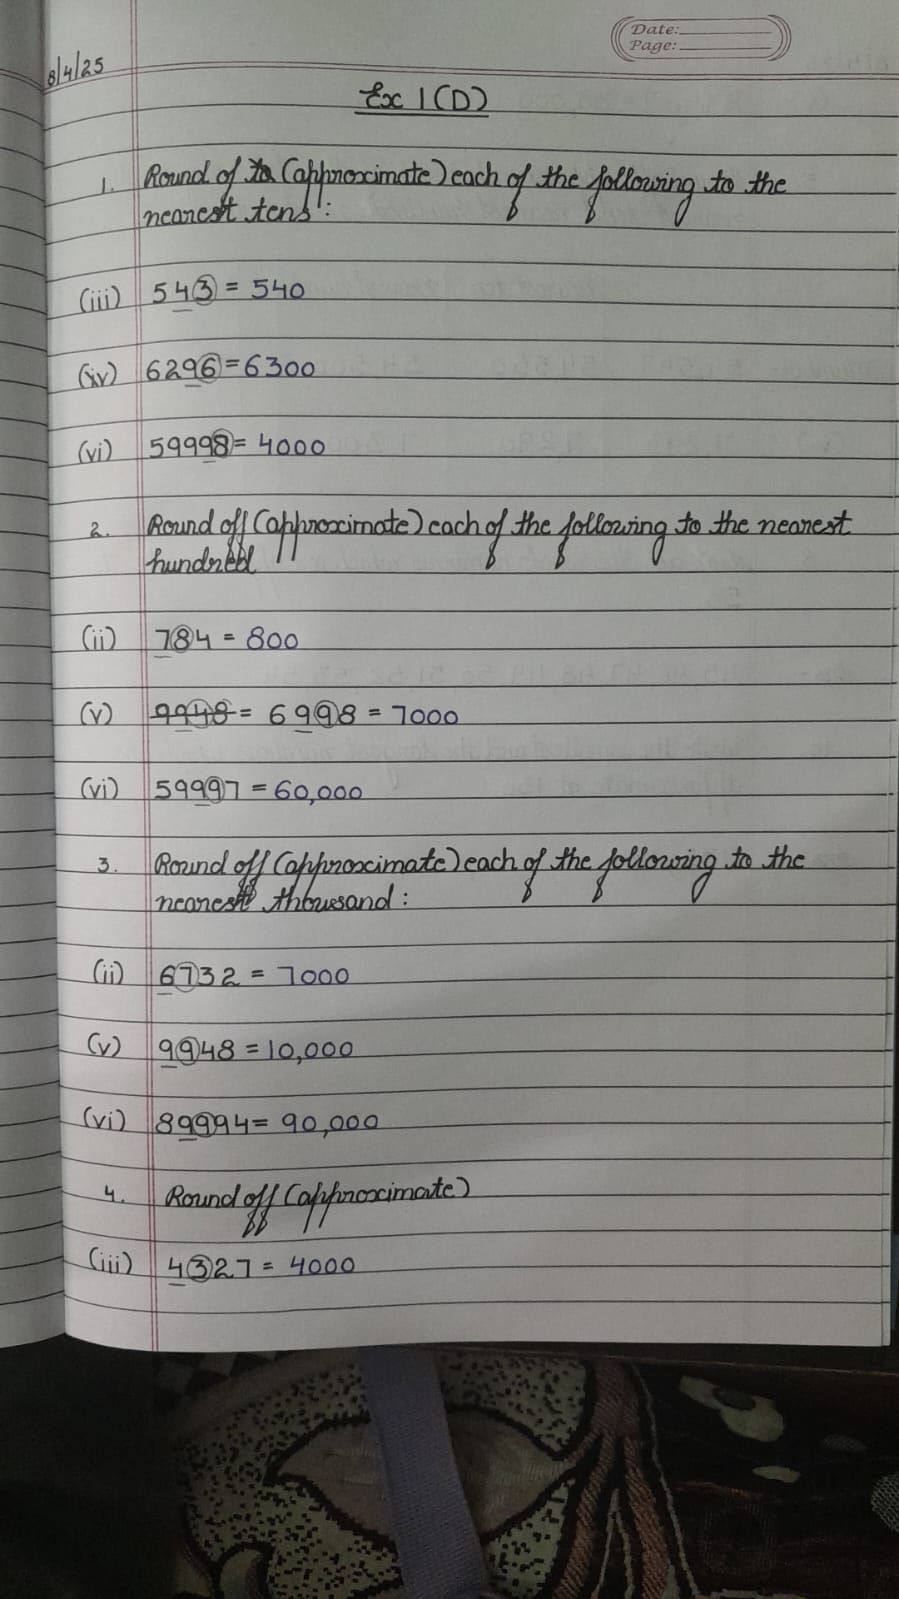 Date:
Page:
8/4/25
Ex 1(D)
1. Round of to (approximate) each of the following to the
nearest tens :
(iii) 543 = 540
(iv) 6296 = 6300
(vi) 59998 = 4000
2. Round off (approximate) each of the following to the nearest
hundred
(ii) 784 = 800
(v) 9948 = 6998 = 7000
(vi) 59997 = 60,000
3. Round off (approximate) each of the following to the
nearest thousand :
(ii) 6732 = 7000
(v) 9948 = 10,000
(vi) 89994 = 90,000
4. Round off (approximate)
(iii) 4327 = 4000